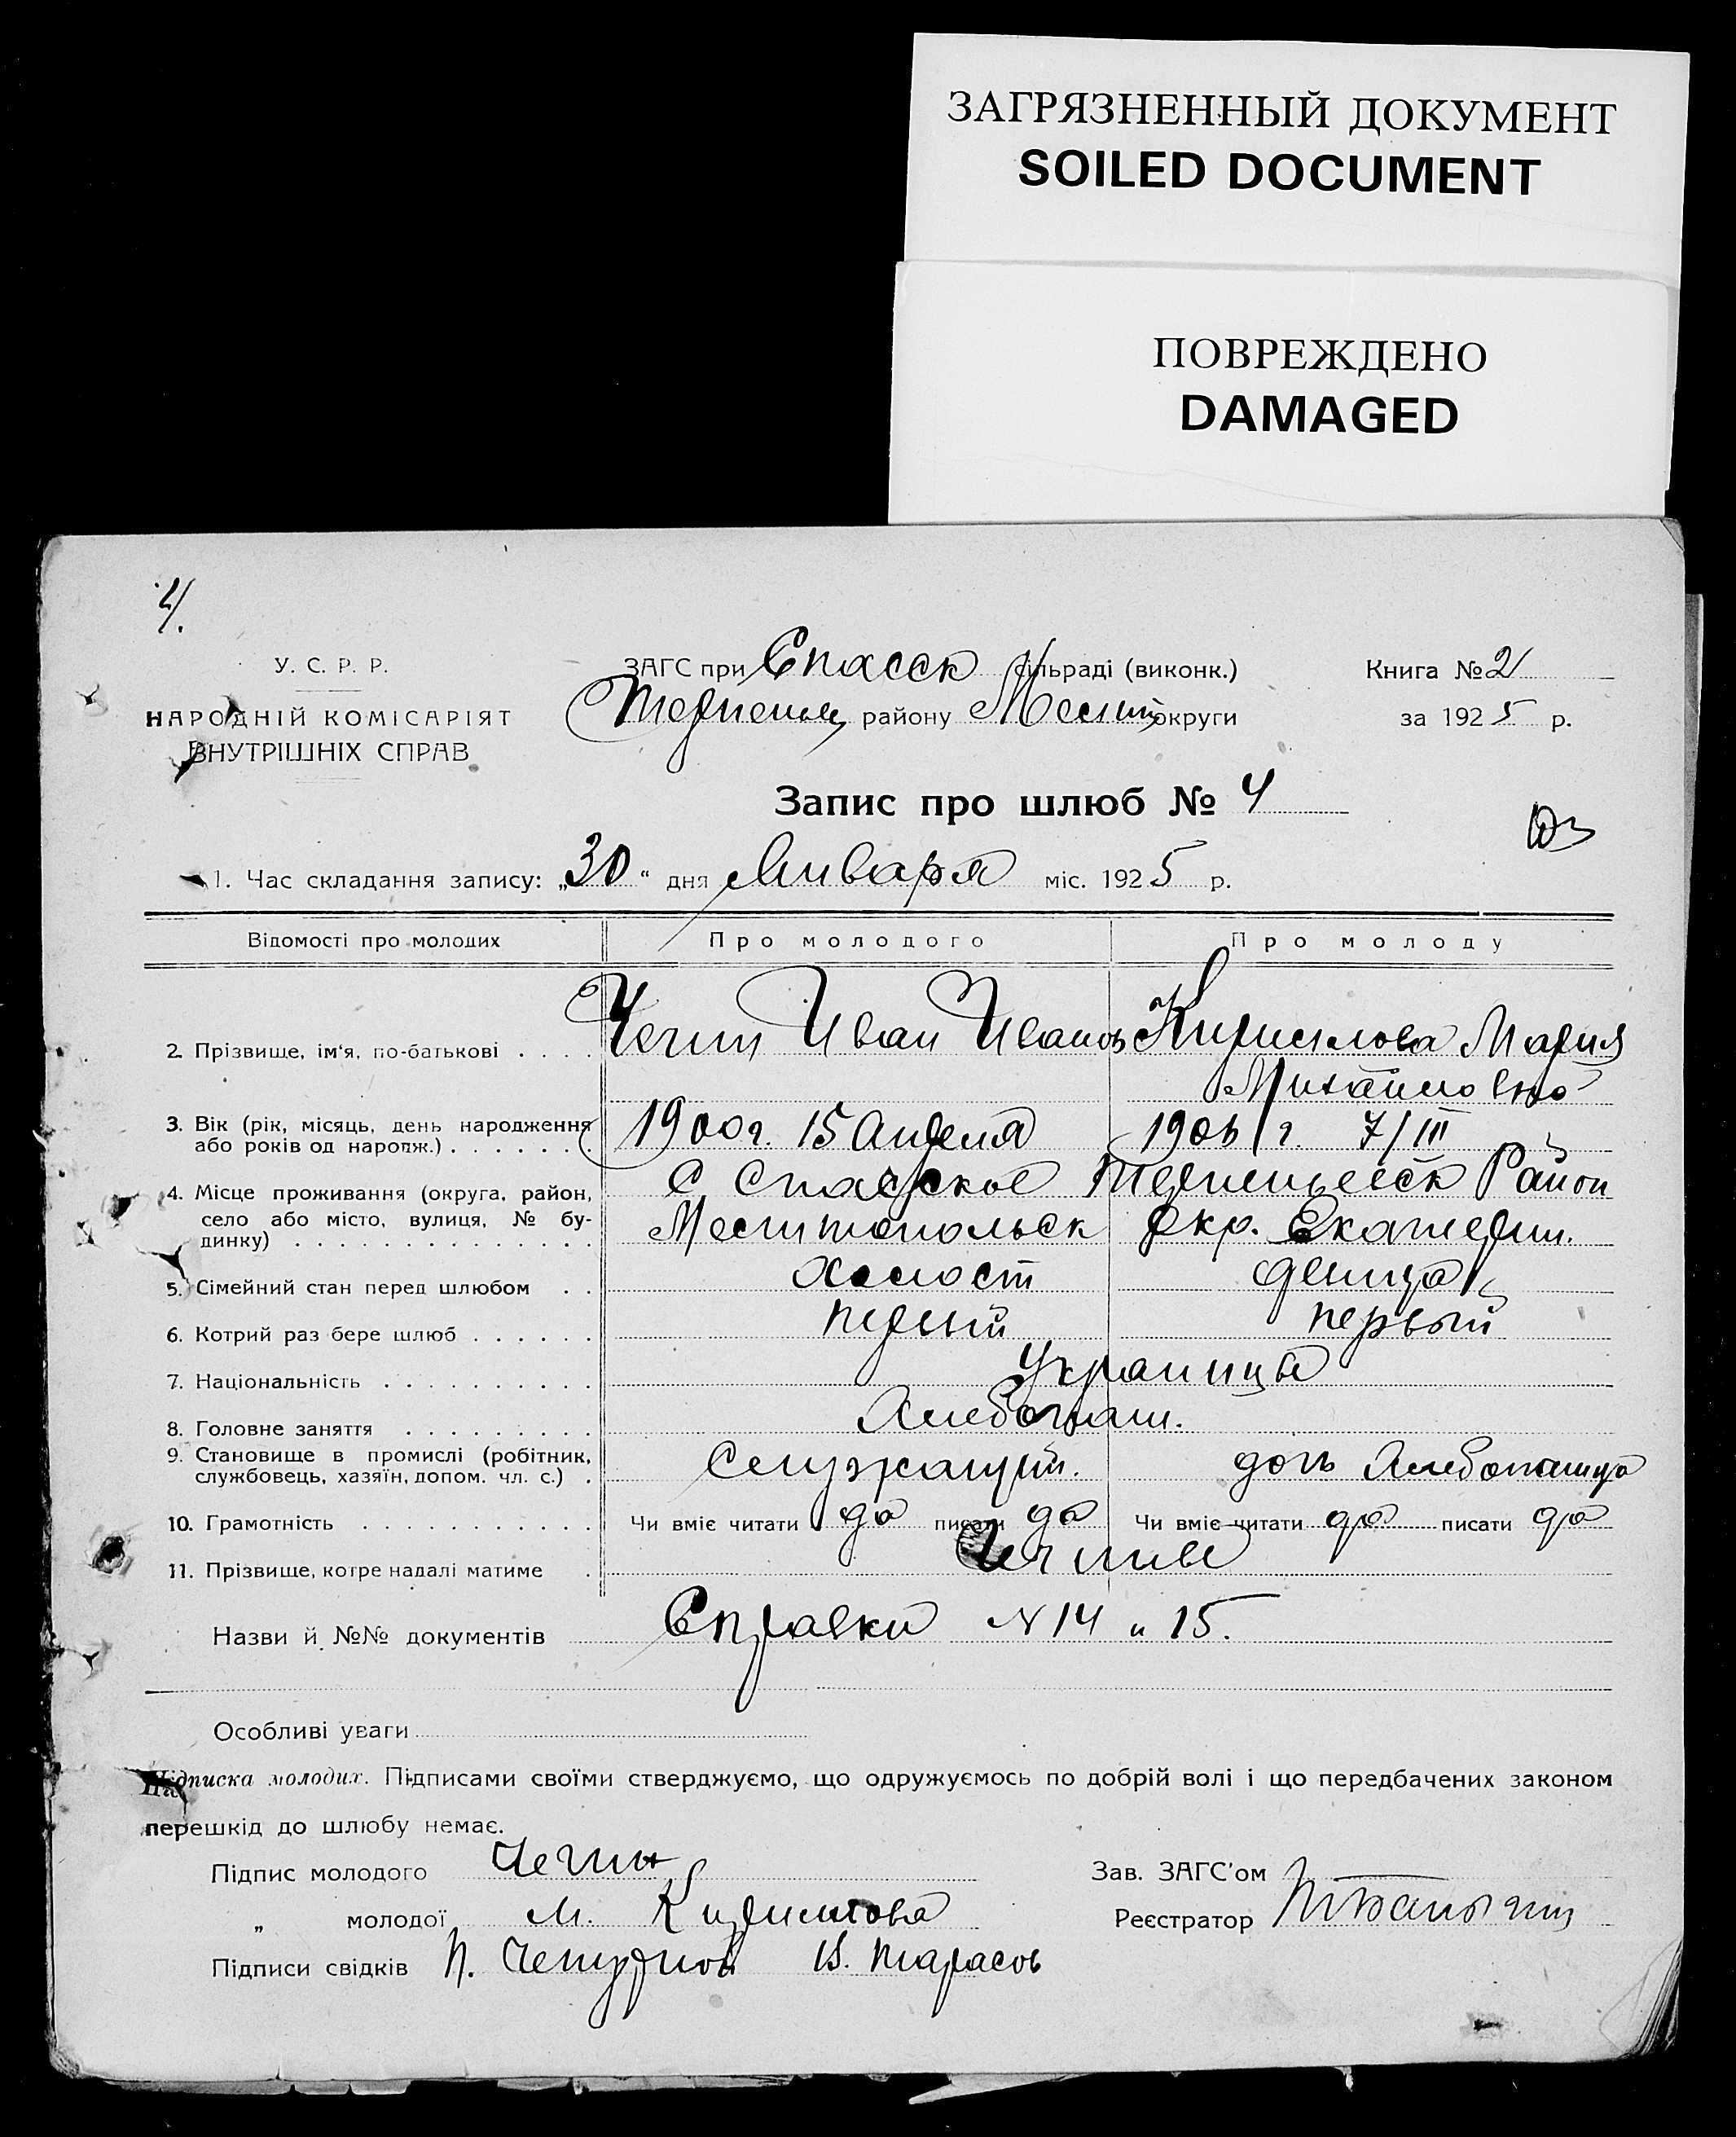 ЗАГРЯЗНЕННЫЙ ДОКУМЕНТ
SOILED DOCUMENT
ПОВРЕЖДЕНО
DAMAGED
4.
У. С. Р. Р.
НАРОДНІЙ КОМІСАРІЯТ
ВНУТРІШНІХ СПРАВ
ЗАГС при Спасск сільраді (виконк.)
району Мелит округи
Книга № 2
за 1925 р.
Запис про шлюб № 4
1. Час складання запису: „30“ дня Января міс. 1925 р.
Відомості про молодих Про молодого Про молоду
2. Прізвище, ім‘я, по-батькові . . . . Иван Иванов Кирилова Мария
Михайловна
3. Вік (рік, місяць, день народження 1900 г. 15 Апреля 1906 г. 7/III
або років од народж.) . . . . . . .
4. Місце проживання (округа, район, с Спасское Терпеньевск Район
село або місто, вулиця, № бу- Мелитопольск Окр. Екатерин.
динку) . . . . . . . . . . . . . .
5. Сімейний стан перед шлюбом . . Холост девица
6. Котрий раз бере шлюб . . . . . . первый первый
7. Національність . . . . . . . . . . Украинцы
8. Головне заняття . . . . . . . . . Хлебопаш.
9. Становище в промислі (робітник, Служащий. дочь Хлебопашца
службовець, хазяїн, допом. чл. с.) .
10. Грамотність . . . . . . . . . . . Чи вміє читати да писати да Чи вміє читати да писати да
11. Прізвище, котре надалі матиме .
Назви й №№ документів Справки N 14 и 15.
Особливі уваги
Підписка молодих. Підписами своїми стверджуємо, що одружуємось по добрій волі і що передбачених законом
перешкід до шлюбу немає.
Підпис молодого
„ молодої М. Кирилова
Підписи свідків П. Чепурнов В. Тарасов
Зав. ЗАГС’ом
Реєстратор